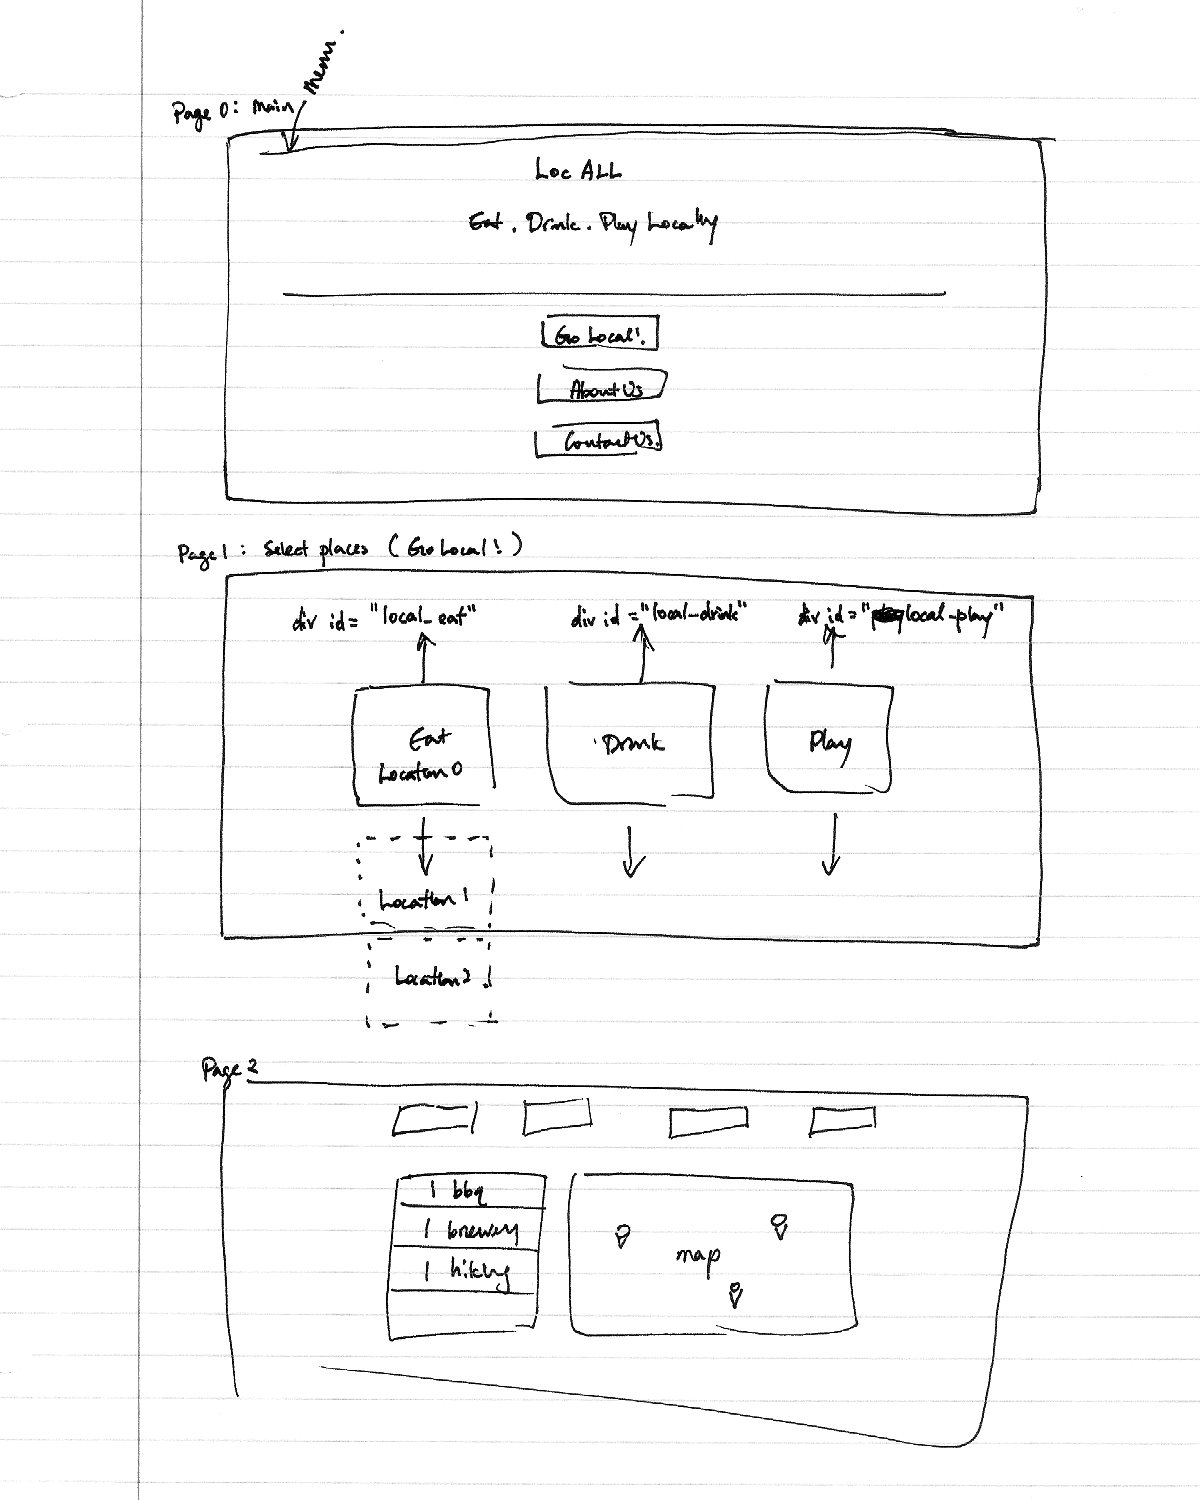 menu.
Page 0: Main
Loc ALL
Eat. Drink. Play Locally
Go Local!
About Us
Contact Us.
Page 1: Select places (Go Local!)
div id= "local_eat"
div id ="local-drink"
div id ="local-play"
Eat
Location 0
Drink
Play
Location 1
Location 2
Page 2
1 bbq
1 brewery
1 hiking
map